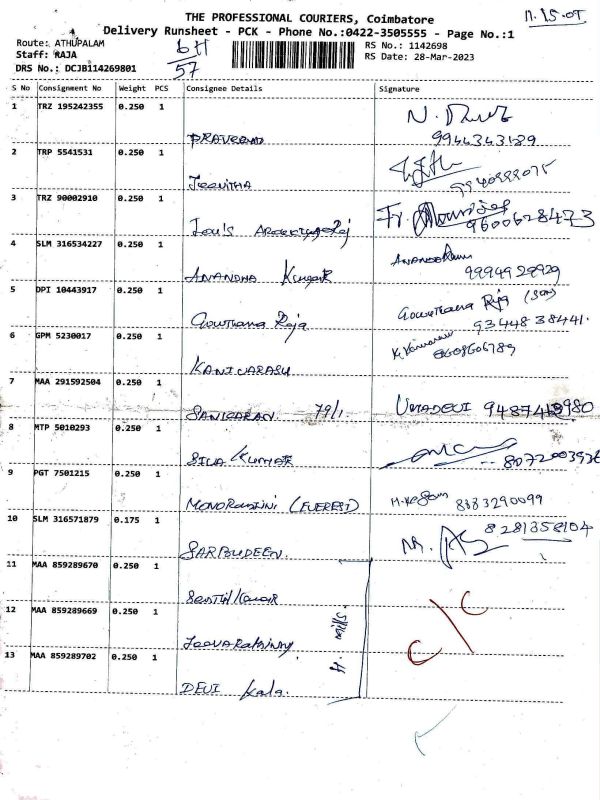 THE PROFESSIONAL COURIERS, Coimbatore
Delivery Runsheet - PCK - Phone No.:0422-3505555 - Page No.:1
Route: ATHUPALAM
RS No.: 1142698
Staff: RAJA
RS Date: 28-Mar-2023
DRS No.: DCJB114269801
57
S No Consignment No Weight PCS Consignee Details Signature
1 TRZ 195242355 0.250 1
9944343189
2 TRP 5541531 0.250 1
3 TRZ 90002910 0.250 1
Louis Raj
9600628473
4 SLM 316534227 0.250 1
ANANDHA Kumar 9994929929
5 DPI 10443917 0.250 1
Gowthama Raja Gowthama Raja (Son)
9344838441.
6 GPM 5230017 0.250 1
KANIVARASU
7 MAA 291592504 0.250 1
SANKARAN 79/1 UMADEVI
8 MTP 5010293 0.250 1
SIVA KUMAR
9 PGT 7501215 0.250 1
8883290099
10 SLM 316571879 0.175 1
8281358104
SARBUDEEN.
11 MAA 859289670 0.250 1
Senthil Kumar
12 MAA 859289669 0.250 1
13 MAA 859289702 0.250 1
DEVI Kala.